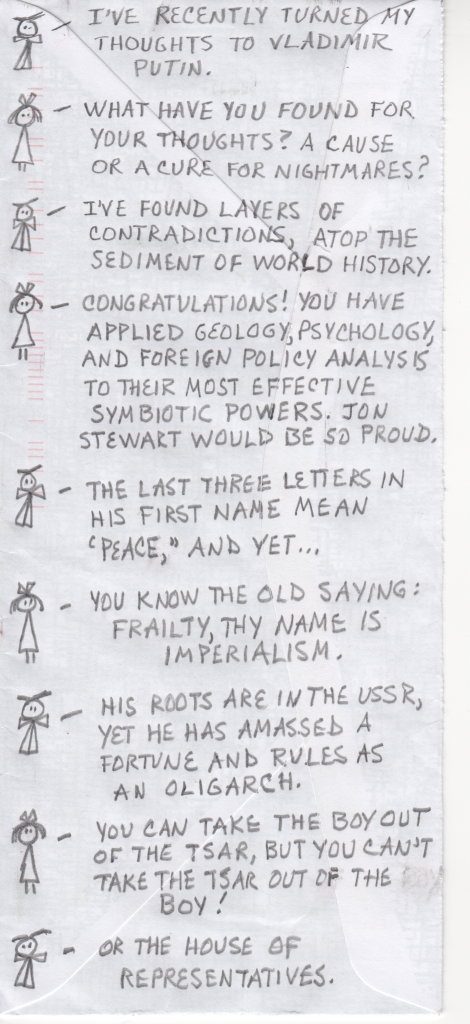 I'VE RECENTLY TURNED MY
THOUGHTS TO VLADIMIR
PUTIN.
WHAT HAVE YOU FOUND FOR
YOUR THOUGHTS? A CAUSE
OR A CURE FOR NIGHTMARES?
I'VE FOUND LAYERS OF
CONTRADICTIONS, ATOP THE
SEDIMENT OF WORLD HISTORY.
CONGRATULATIONS! YOU HAVE
APPLIED GEOLOGY, PSYCHOLOGY,
AND FOREIGN POLICY ANALYSIS
TO THEIR MOST EFFECTIVE
SYMBIOTIC POWERS. JON
STEWART WOULD BE SO PROUD.
THE LAST THREE LETTERS IN
HIS FIRST NAME MEAN
"PEACE," AND YET...
YOU KNOW THE OLD SAYING:
FRAILTY, THY NAME IS
IMPERIALISM.
HIS ROOTS ARE IN THE USSR,
YET HE HAS AMASSED A
FORTUNE AND RULES AS
AN OLIGARCH.
YOU CAN TAKE THE BOY OUT
OF THE TSAR, BUT YOU CAN'T
TAKE THE TSAR OUT OF THE
BOY!
OR THE HOUSE OF
REPRESENTATIVES.